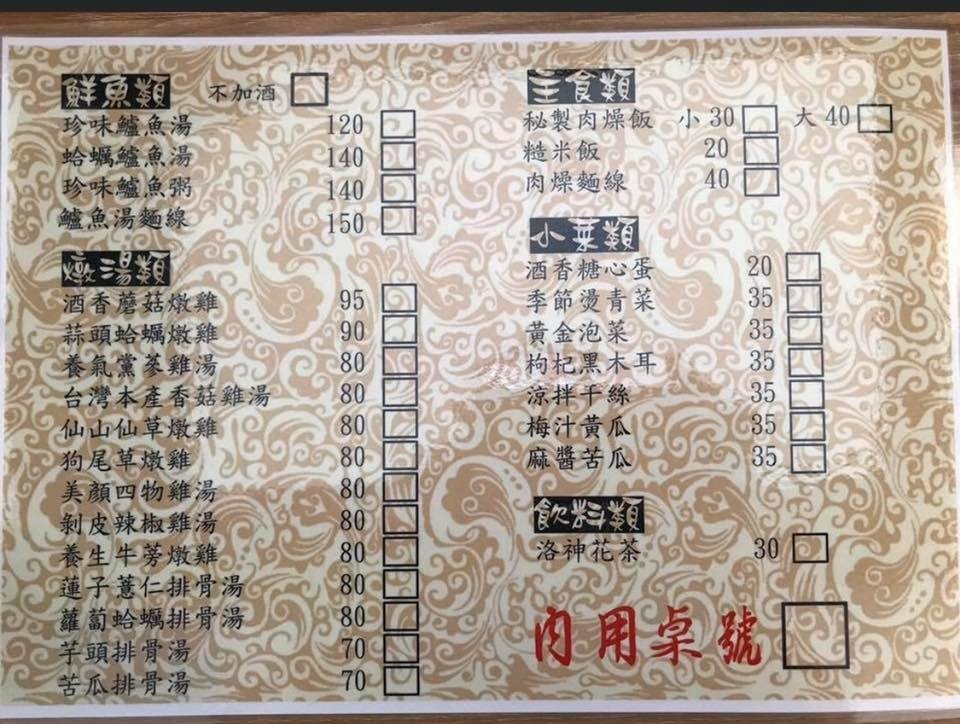 鮮魚類 不加酒
珍味鱸魚湯 120
蛤蠣鱸魚湯 140
珍味鱸魚粥 140
鱸魚湯麵線 150
燉湯類
酒香蘑菇燉雞 95
蒜頭蛤蠣燉雞 90
養氣黨蔘雞湯 80
台灣本產香菇雞湯 80
仙山仙草燉雞 80
狗尾草燉雞 80
美顏四物雞湯 80
剝皮辣椒雞湯 80
養生牛蒡燉雞 80
蓮子薏仁排骨湯 80
蘿蔔蛤蠣排骨湯 80
芋頭排骨湯 70
苦瓜排骨湯 70
主食類
秘製肉燥飯 小30 大40
糙米飯 20
肉燥麵線 40
小菜類
酒香糖心蛋 20
季節燙青菜 35
黃金泡菜 35
枸杞黑木耳 35
涼拌干絲 35
梅汁黃瓜 35
麻醬苦瓜 35
飲料類
洛神花茶 30
內用桌號